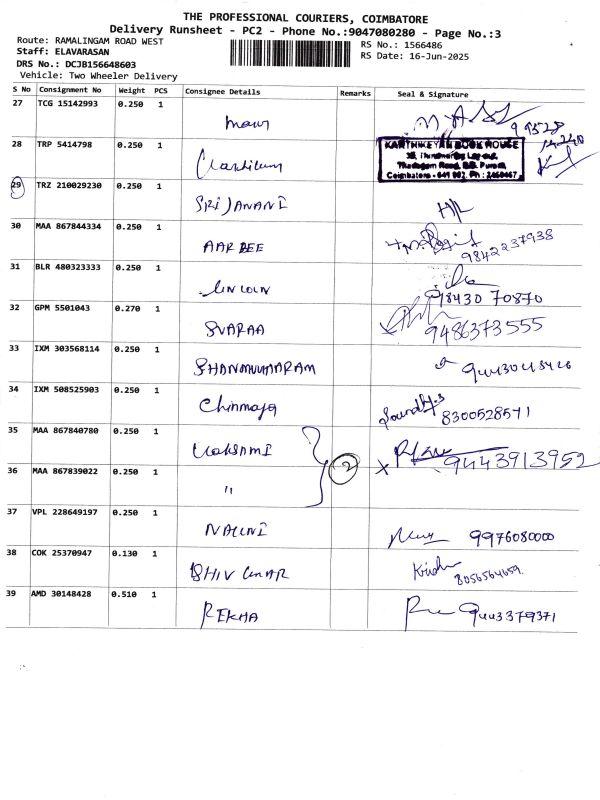 THE PROFESSIONAL COURIERS, COIMBATORE
Delivery Runsheet - PC2 - Phone No.:9047080280 - Page No.:3
Route: RAMALINGAM ROAD WEST
Staff: ELAVARASAN
DRS No.: DCJB156648603
Vehicle: Two Wheeler Delivery
RS No.: 1566486
RS Date: 16-Jun-2025
S No Consignment No Weight PCS Consignee Details Remarks Seal & Signature
27 TCG 15142993 0.250 1
28 TRP 5414798 0.250 1 KARTHIKEYAN BOOK HOUSE
Coimbatore - 641 002. Ph :
29 TRZ 210029230 0.250 1 SRI JANANI
30 MAA 867844334 0.250 1 AAR BEE 9842237938
31 BLR 480323333 0.250 1 LINCOLN 98430 70870
32 GPM 5501043 0.270 1 SVARAA 9486373555
33 IXM 303568114 0.250 1
34 IXM 508525903 0.250 1 Chinmaya 8300528571
35 MAA 867840780 0.250 1 9443913952
36 MAA 867839022 0.250 1 " 2
37 VPL 228649197 0.250 1 NALINI 9976080000
38 COK 25370947 0.130 1 8056564659
39 AMD 30148428 0.510 1 REKHA 9443379371